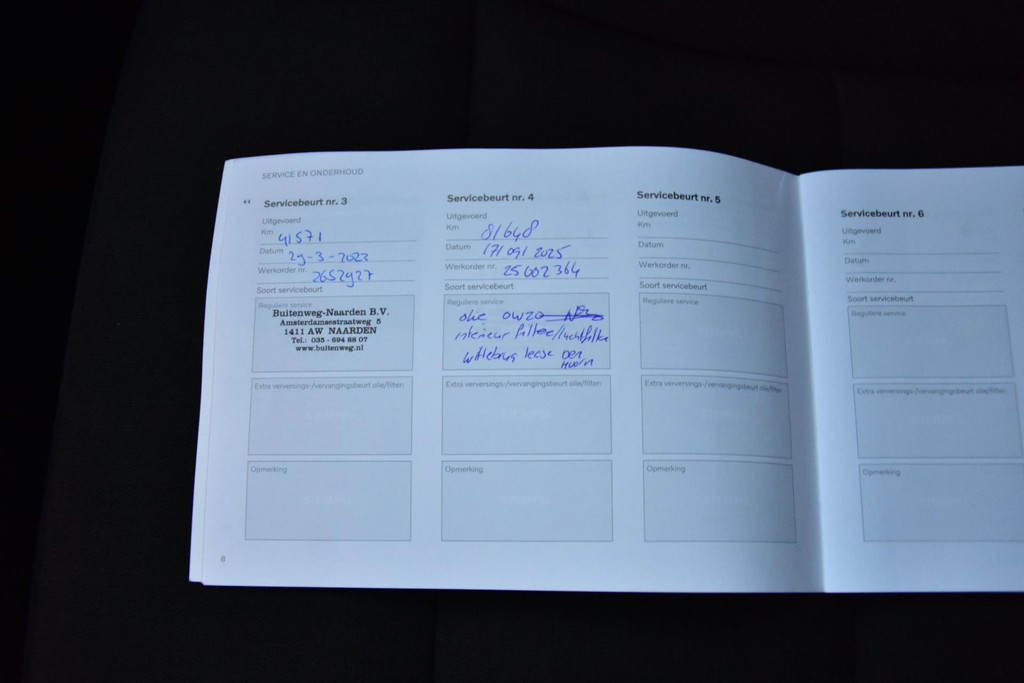 SERVICE EN ONDERHOUD
Servicebeurt nr. 3
Uitgevoerd
Km 41571
Datum 29-3-2023
Werkorder nr. 2652927
Soort servicebeurt
Reguliere service
Buitenweg-Naarden B.V.
Amsterdamsestraatweg 5
1411 AW NAARDEN
Tel.: 035 - 694 88 07
www.buitenweg.nl
Extra verversings-/vervangingsbeurt olie/filter:
Opmerking
8
Servicebeurt nr. 4
Uitgevoerd
Km 81648
Datum 17/09/2025
Werkorder nr. 25002364
Soort servicebeurt
Reguliere service
olie
interieur filter/luchtfilter
lease Den
Extra verversings-/vervangingsbeurt olie/filter:
Opmerking
Servicebeurt nr. 5
Uitgevoerd
Km
Datum
Werkorder nr.
Soort servicebeurt
Reguliere service
Extra verversings-/vervangingsbeurt olie/filter:
Opmerking
Servicebeurt nr. 6
Uitgevoerd
Km
Datum
Werkorder nr.
Soort servicebeurt
Reguliere service
Extra verversings-/vervangingsbeurt olie/filter:
Opmerking